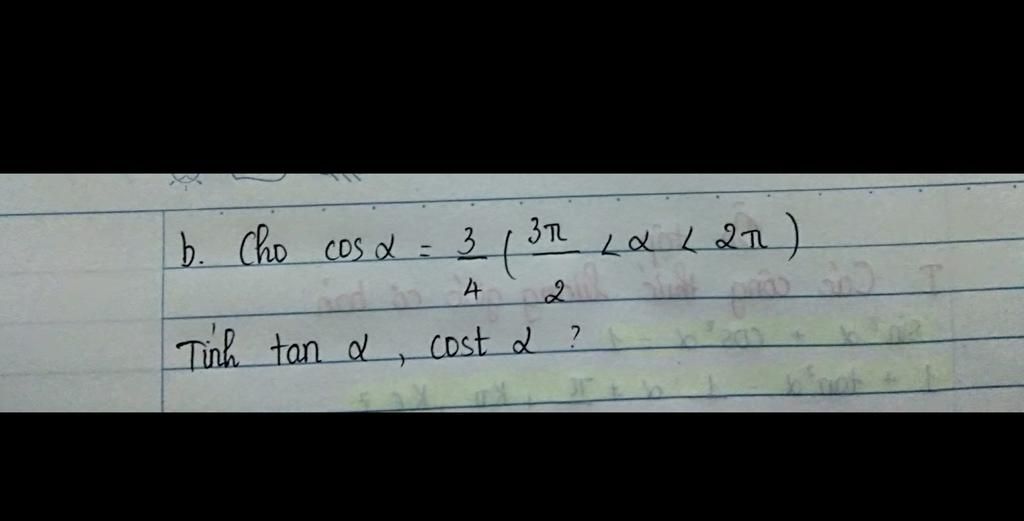 b. Cho cos α = 3/4 ( 3π/2 < α < 2π )
Tính tan α , cost α ?